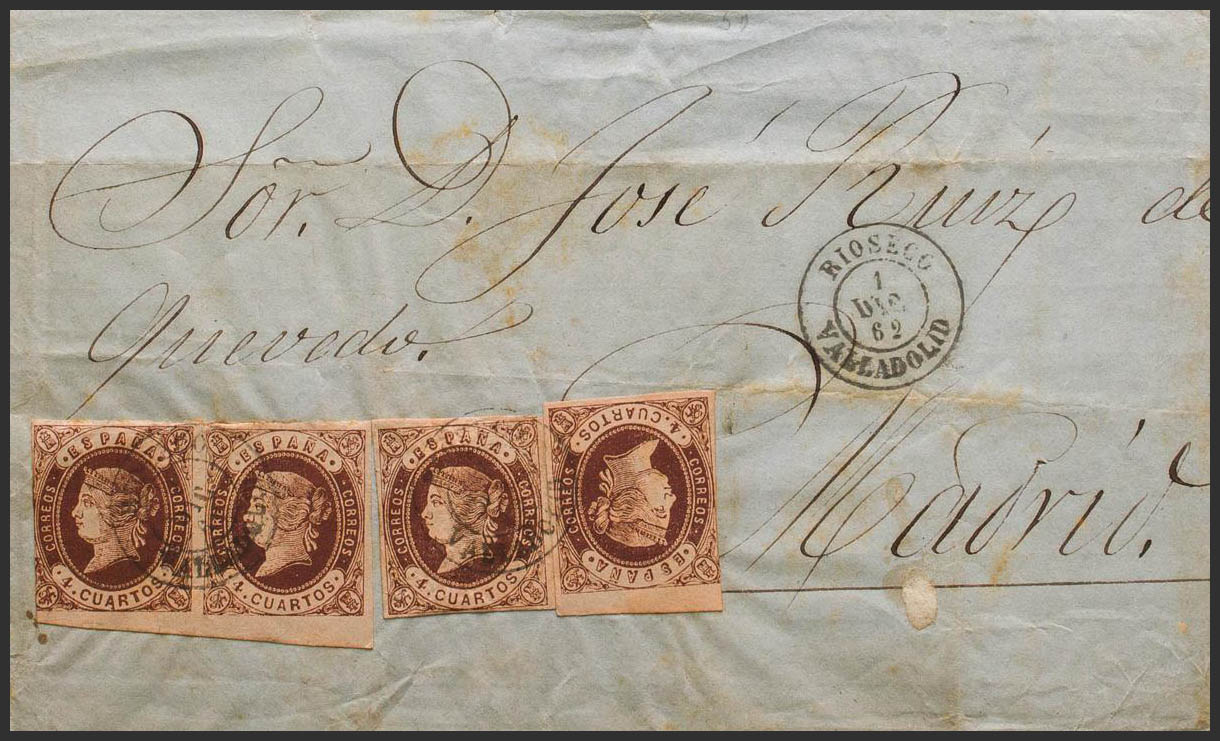 Sör. D. José Ruiz de
Quevedo.
RIOSECO
1
DIC.
62
VALLADOLID
Madrid.
·ESPAÑA·
CORREOS
CORREOS
4. CUARTOS
·ESPAÑA·
CORREOS
CORREOS
4. CUARTOS
·ESPAÑA·
CORREOS
CORREOS
4. CUARTOS
·ESPAÑA·
CORREOS
CORREOS
4. CUARTOS